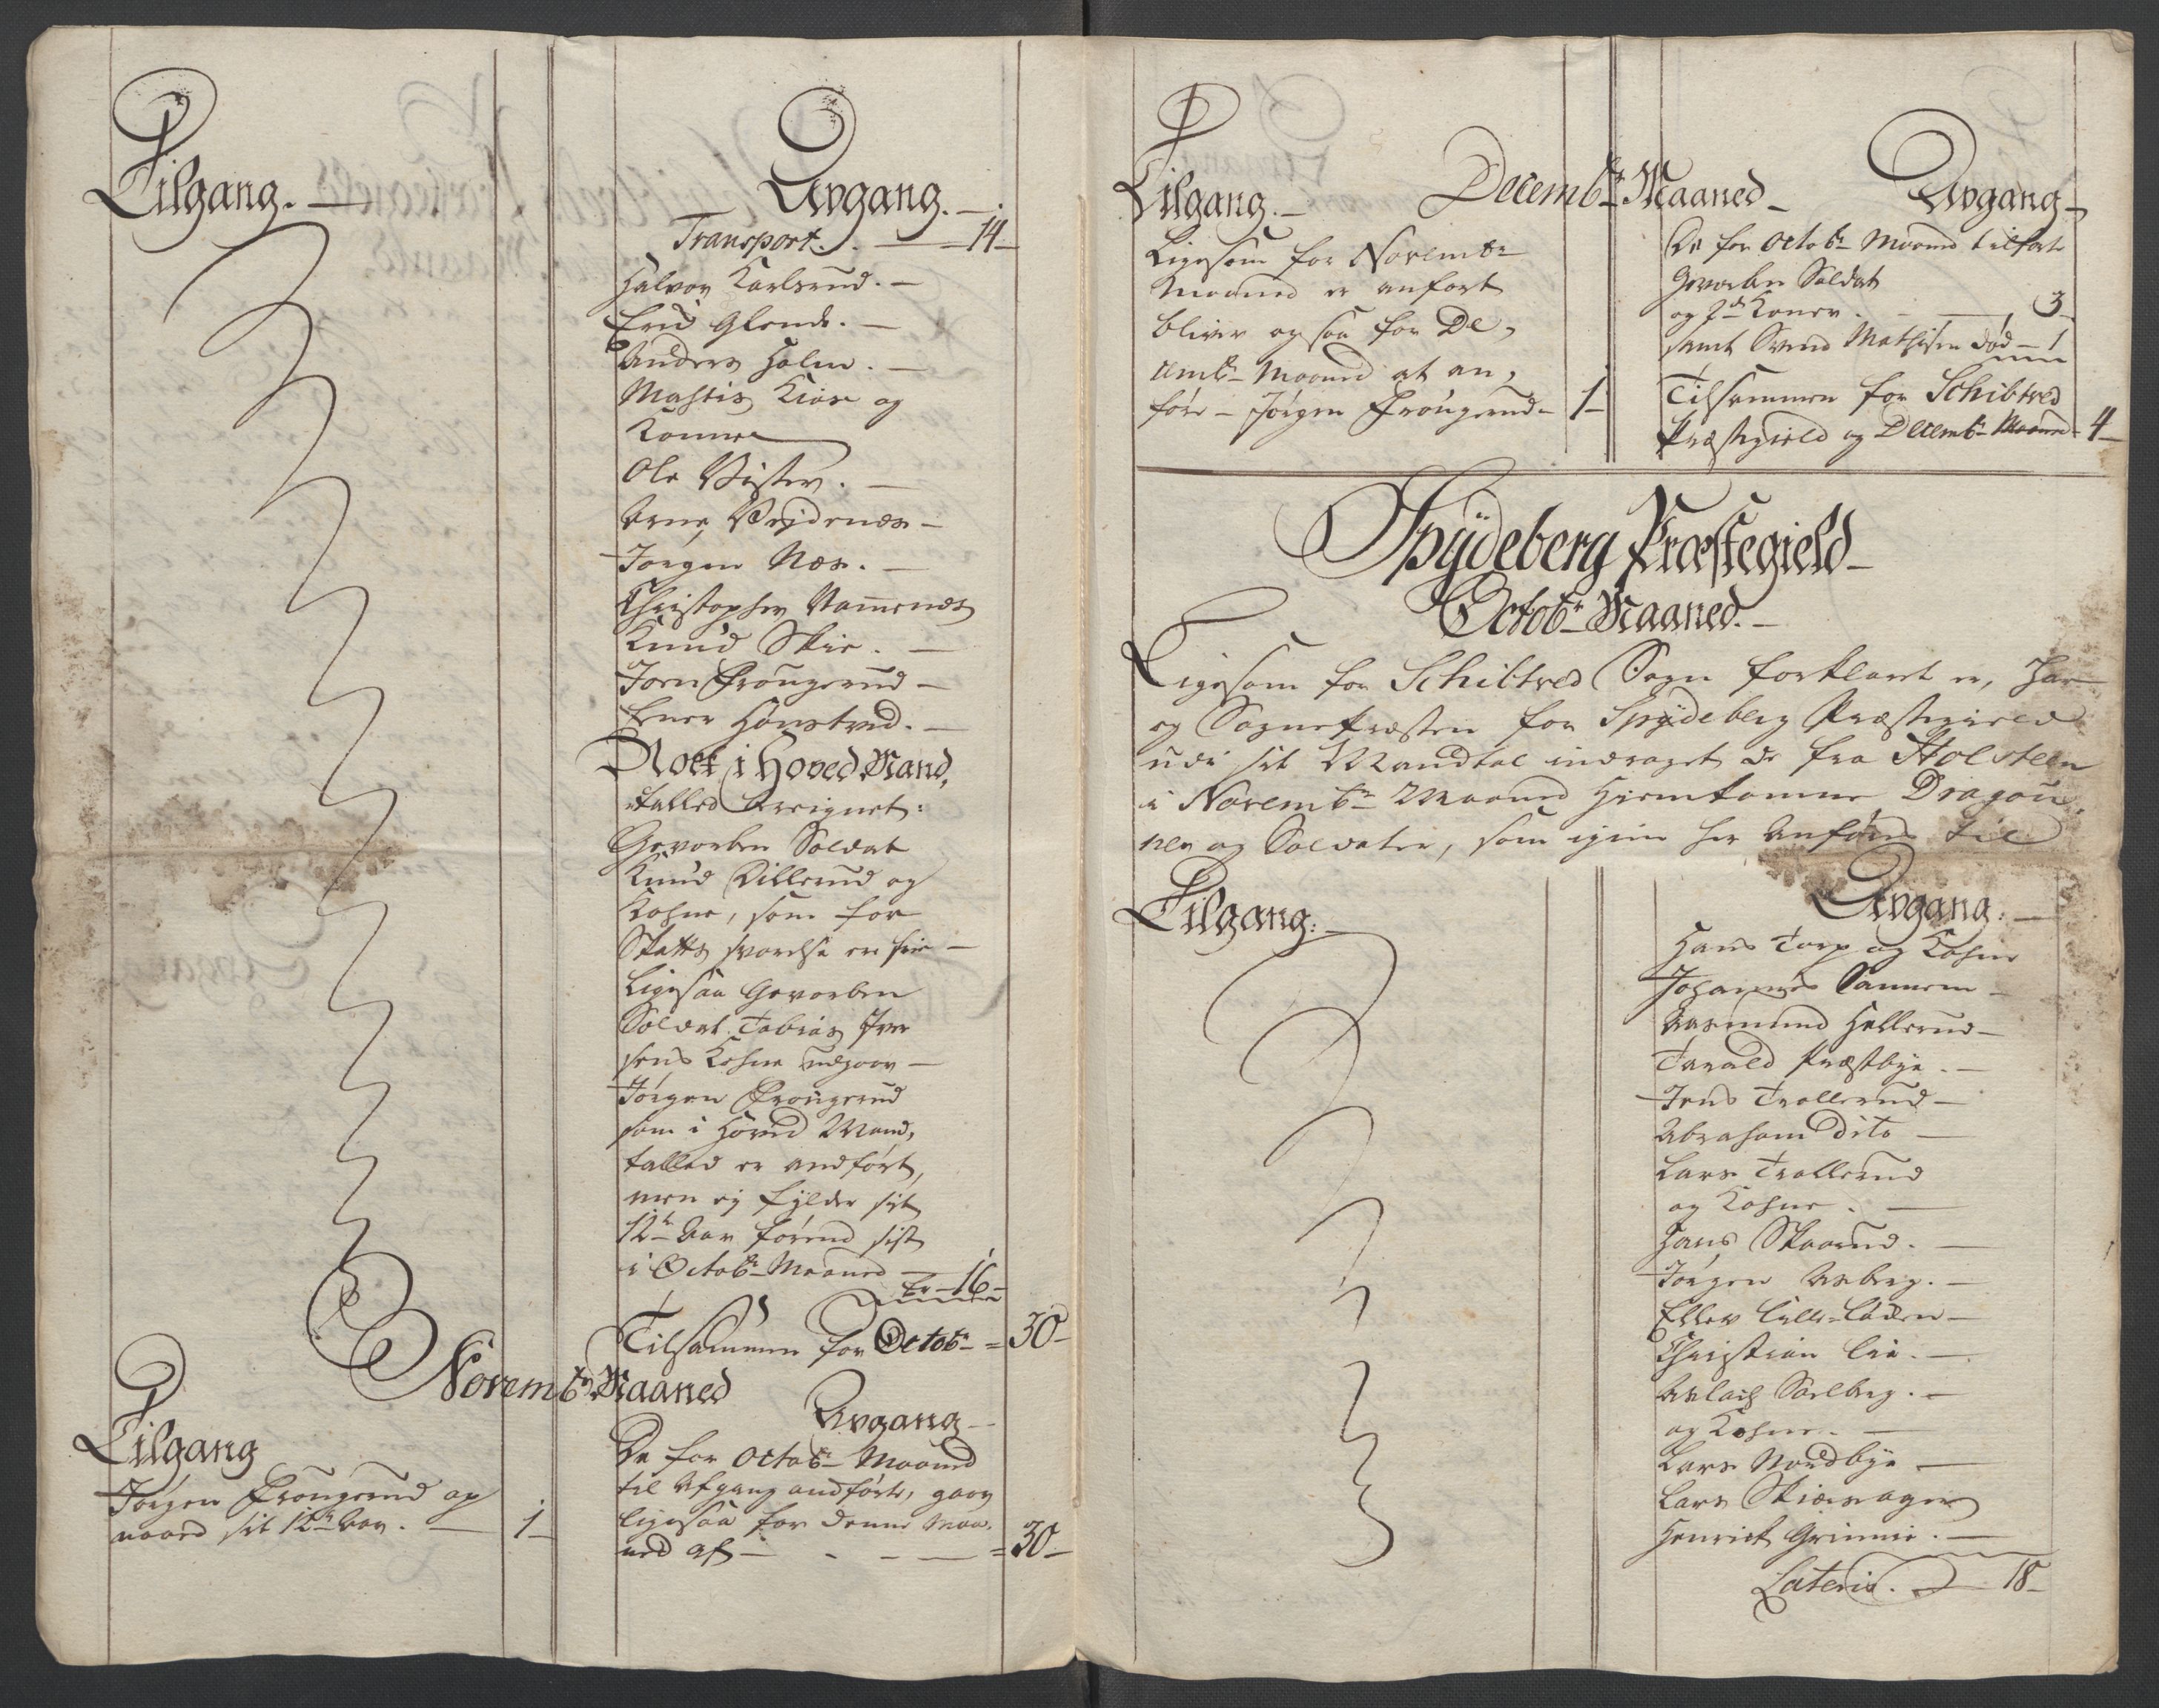 Tilgang.
Avgang.
Transport. 14
Halvor Karlsrud.
Erid Glende.
Anders Holm.
Mathis Kiær og
Konne
Ole Vister.
Arne Veidenæs
Jørgen Næs.
Christopher Rammenes
Knud Skie.
Joen Frougerud
Ener Hønstved.
Noet i Hoved Mand,
talled beregnet:
Gevorben Soldat
Knud Dillerud og
Kohne, som for
Skatts svarelse er frie
Ligesaa Gevorben
Soldat Tobias Iver
sens Kohne udgaar
Jørgen Frougerud
som i Hoved Mand,
tallet er andført,
men ej fylder sit
12te Aar førend sist
i Octobr Maaned
Er 16
Tilsammen for Octobr = 30
Novembr Maaned
Tilgang
Jørgen Frougerud op
naaed sit 12te Aar. 1
Avgang
De for Octobr Maaned
til Afgang andførte, gaar
ligesaa for denne Maa,
ned af = 30
Decembr Maaned
Tilgang.
Ligesom for Novembr
Maaned er anført
bliver og saa for De,
cembr Maaned at an,
føre Jørgen Frougerud 1
Avgang
De for Octobr Maaned tilførte
Gevorben Soldat
og 2de Koner 3
samt Svend Mathisen død 1
Tilsammen for Schibtved
Præstegield og Decembr Maaned 4
Spydeberg Præstegield
Octobr Maaned.
Ligesom for Schibtved Sogn forklaret er, har
og Sognepræsten for Spydeberg Præstegield
udi sit Mandtal inddraget de fra Holsteen
i Novembr Maaned Hjemkomne Dragou,
ner og Soldater, som igien her Anføres til
Tilgang:
Avgang.
Hans Torp og Kohne
Johannes Sannem
Aasmund Hallerud
Tarald Præstbye.
Jens Trollerud
Abraham Dito
Lars Trollerud
og Kohne.
Hans Skaarud.
Jørgen Aaberg.
Ellev Lille-Løken
Christian Lie.
Aslach Solberg.
og Kohne.
Lars Nordbye
Lars Skiæragen
Henrich Grinnie.
Lateris. 18